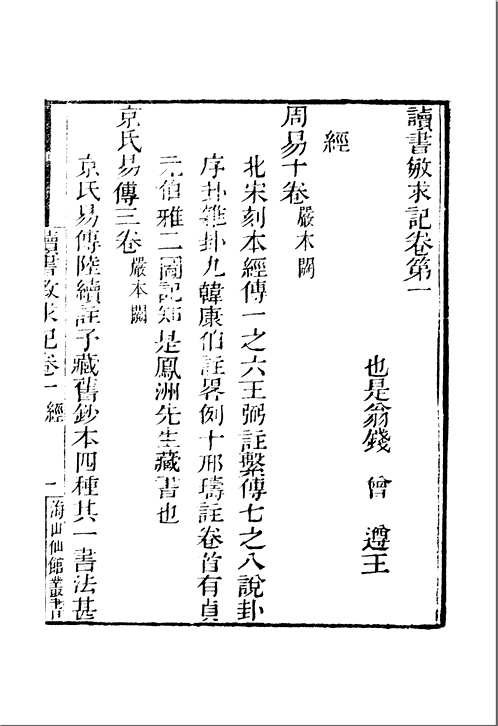 讀書敏求記卷第一
也是翁錢 曾 遵王
經
周易十卷 嚴本闕
北宋刻本經傳一之六王弼註繫傳七之八說卦
序卦雜卦九韓康伯註畧例十邢璹註卷首有貞
元伯雅二圖記知是鳳洲先生藏書也
京氏易傳三卷 嚴本闕
京氏易傳陸績註予藏舊鈔本四種其一書法甚
讀書敏求記卷一 經 一 海山仙館叢書